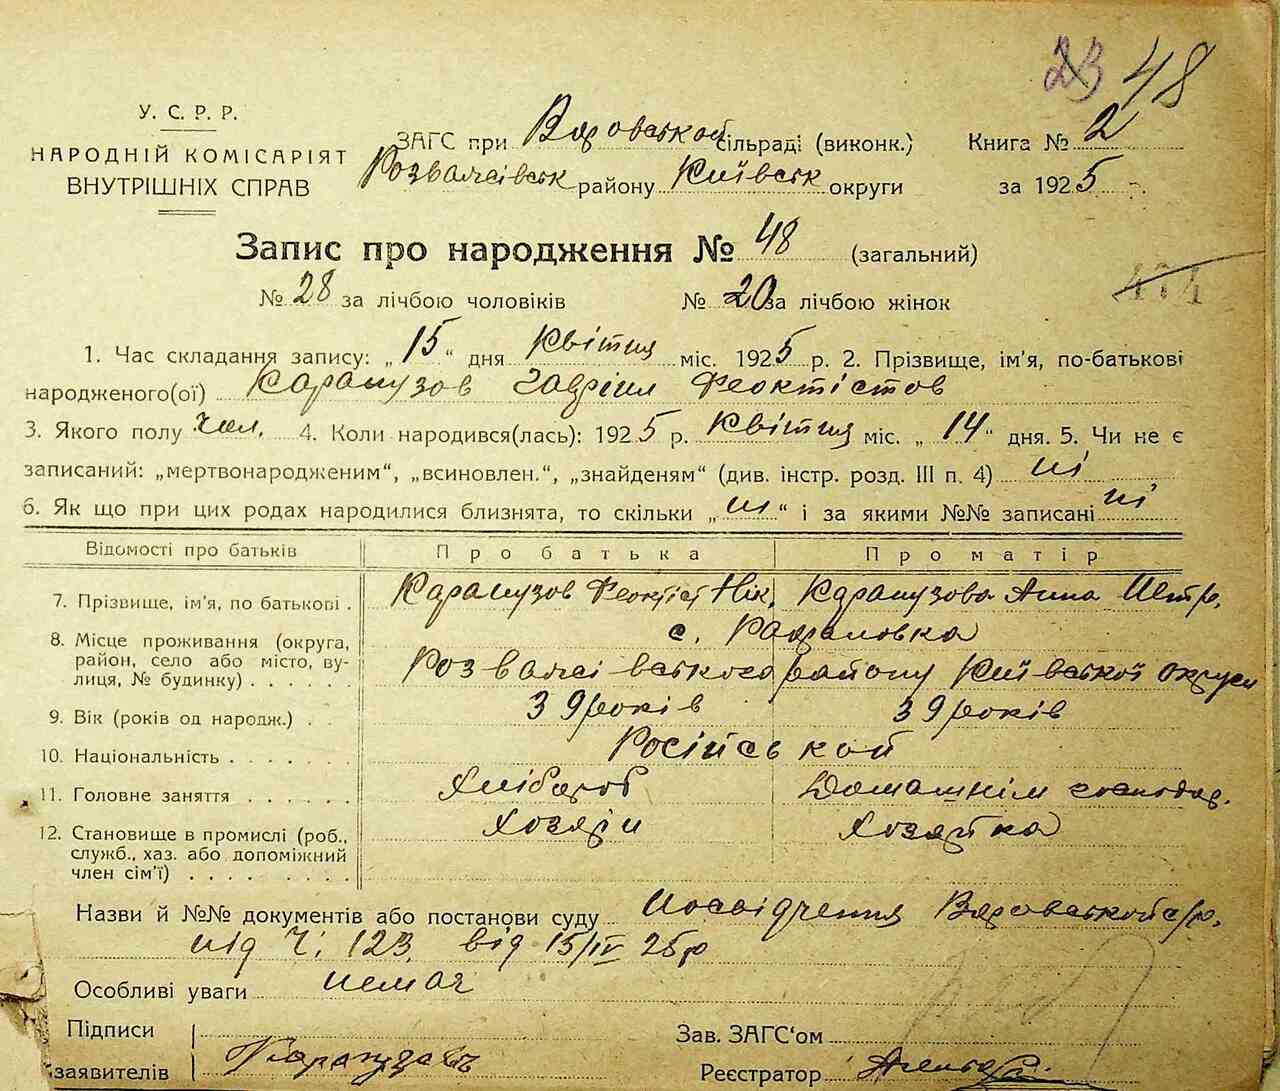 23 48
У. С. Р. Р.
НАРОДНІЙ КОМІСАРІЯТ
ВНУТРІШНІХ СПРАВ
ЗАГС при Вяровській сільраді (виконк.) Книга № 2
району Київськ округи за 1925
Запис про народження № 48 (загальний)
474
№ 28 за лічбою чоловіків № 20 за лічбою жінок
1. Час складання запису: „15“ дня Квітня міс. 1925 р. 2. Прізвище, ім'я, по-батькові
народженого(ої) Карамузов Гавріил Феоктістов
3. Якого полу Чол. 4. Коли народився(лась): 1925 р. Квітня міс. „14“ дня. 5. Чи не є
записаний: „мертвонародженим“, „всиновлен.“, „знайденям“ (див. інстр. розд. III п. 4) ні
6. Як що при цих родах народилися близнята, то скільки „ні“ і за якими №№ записані ні
Відомості про батьків Про батька Про матір
7. Прізвище, ім'я, по батькові . Карамузов Феоктіст Нік. Карамузова Анна Петр.
8. Місце проживання (округа,
район, село або місто, ву-
лиця, № будинку) . . . . . .
с.
району Київської округи
9. Вік (років од народж.) . . 39 років 39 років
10. Національність . . . . . . . Російської
11. Головне заняття . . . . . . Хлібороб Домашнім господар.
12. Становище в промислі (роб.,
служб., хаз. або допоміжний
член сім'ї) . . . . . . . .
Хозяїн Хозяйка
Назви й №№ документів або постанови суду Посвідчення Вяровської с/р.
під Ч. 123 від 15/IV 25р
Особливі уваги немає
Підписи
заявителів
Зав. ЗАГС‘ом
Реєстратор